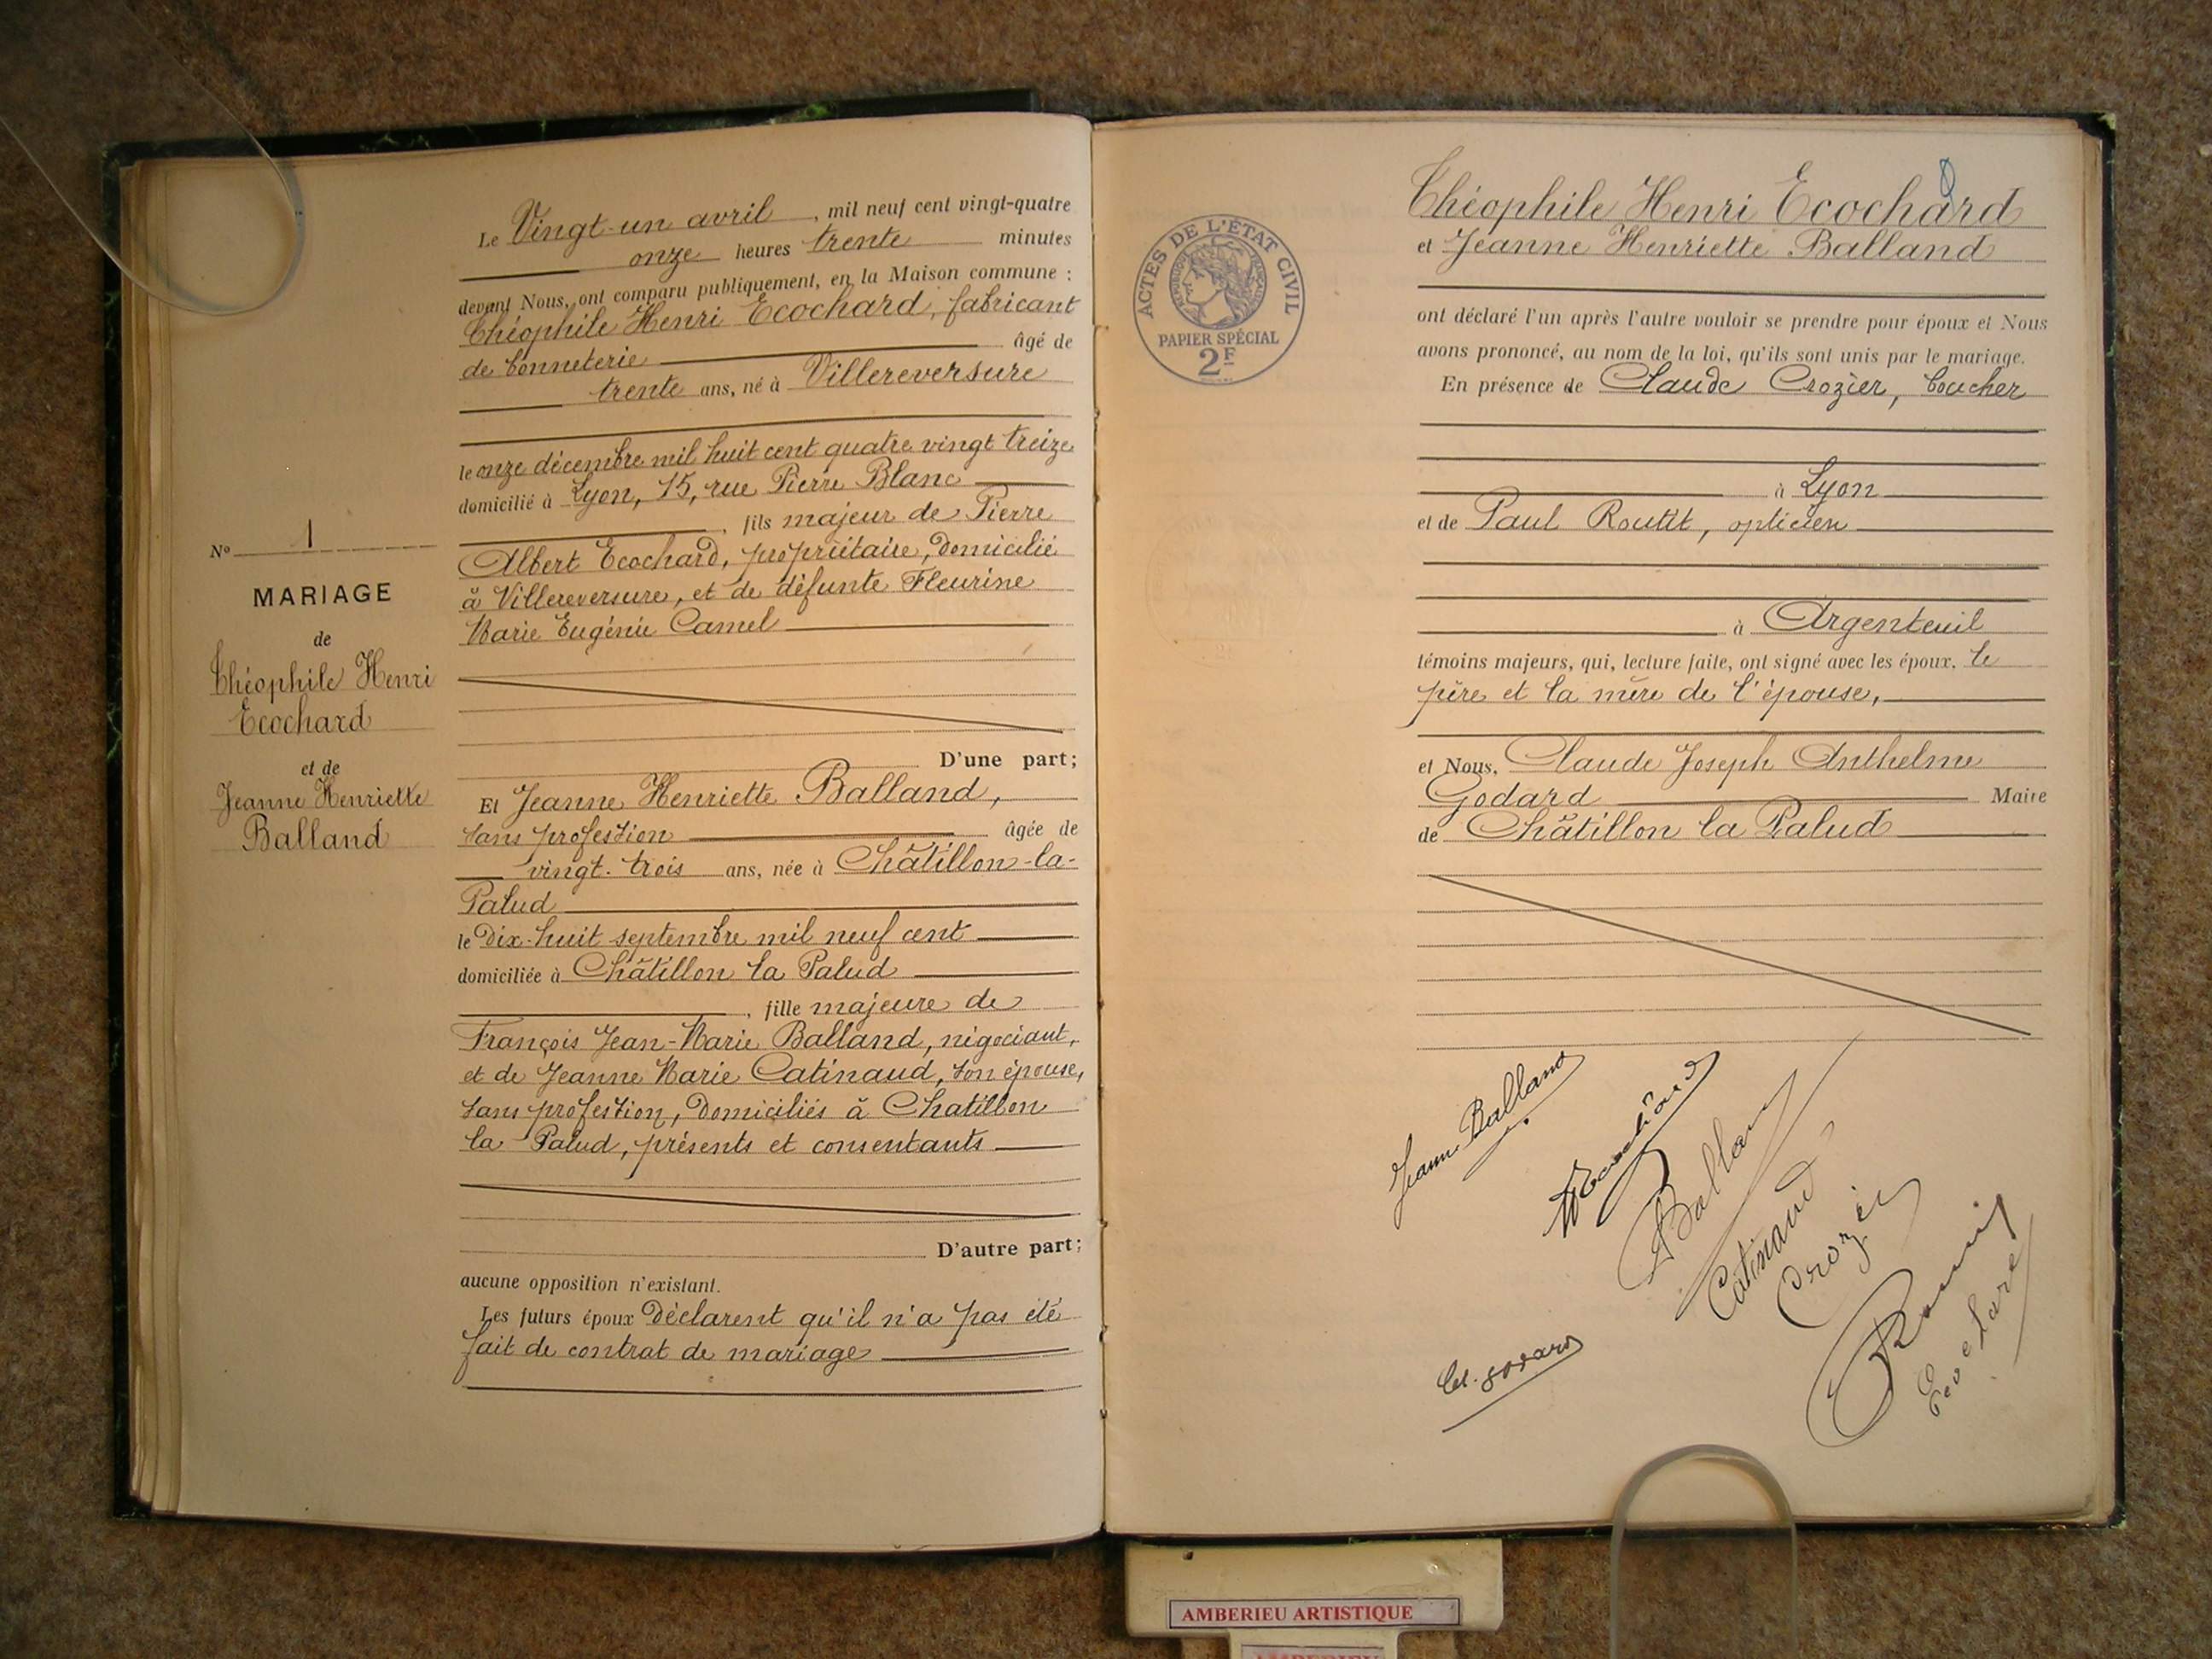 Le Vingt-un avril, mil neuf cent vingt-quatre
onze heures trente minutes
devant Nous, ont comparu publiquement, en la Maison commune :
Théophile Henri Ecochard, fabricant
de bonneterie âgé de
trente ans, né à Villereversure
le onze décembre mil huit cent quatre vingt treize
domicilié à Lyon, 15, rue Pierre Blanc
, fils majeur de Pierre
Albert Ecochard, propriétaire, domicilié
à Villereversure, et de défunte Fleurine
Marie Eugénie Camel
D'une part;
Et Jeanne Henriette Balland,
sans profession âgée de
vingt-trois ans, née à Châtillon-la-
Palud
le Dix-huit septembre mil neuf cent
domiciliée à Châtillon la Palud
, fille majeure de
François Jean-Marie Balland, négociant,
et de Jeanne Marie Catinaud, son épouse,
sans profession, domiciliés à Chatillon
la Palud, présents et consentants
D'autre part;
aucune opposition n'existant.
Les futurs époux Déclarent qu'il n'a pas été
fait de contrat de mariage
No 1
MARIAGE
de
Théophile Henri
Ecochard
et de
Jeanne Henriette
Balland
ACTES DE L'ETAT CIVIL
REPUBLIQUE FRANÇAISE
PAPIER SPÉCIAL
2F
Théophile Henri Ecochard
et Jeanne Henriette Balland
ont déclaré l'un après l'autre vouloir se prendre pour époux et Nous
avons prononcé, au nom de la loi, qu'ils sont unis par le mariage.
En présence de Claude Crozier, boucher
à Lyon
et de Paul, opticien
à Argenteuil
témoins majeurs, qui, lecture faite, ont signé avec les époux, le
père et la mère de l'épouse,
et Nous, Claude Joseph Anthelme
Godard Maire
de Châtillon la Palud
Jeanne Balland
Ecochard
Balland
Catinaud
Crozier
Godard
AMBERIEU ARTISTIQUE